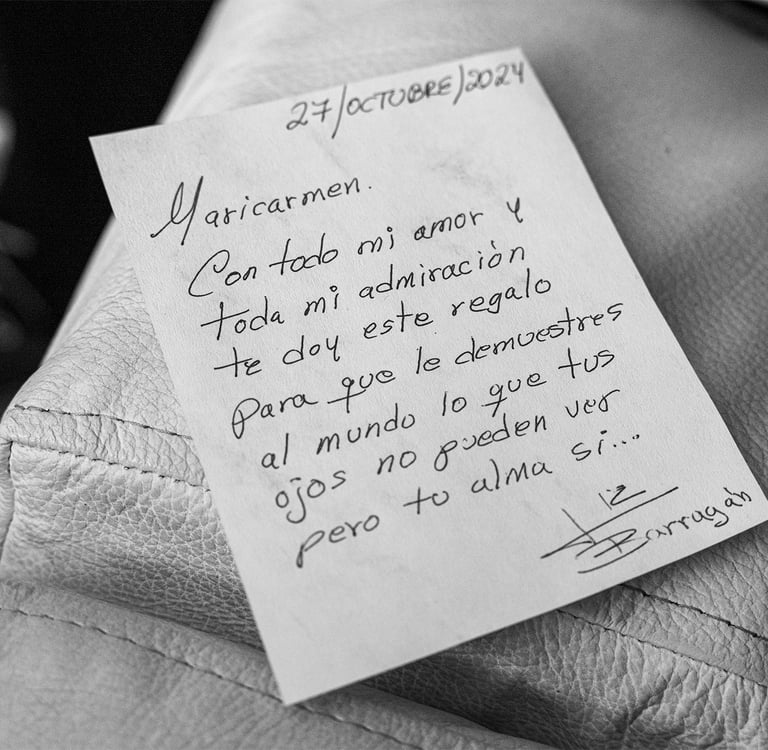 27/OCTUBRE/2024
Maricarmen.
Con todo mi amor y
toda mi admiración
te doy este regalo
para que le demuestres
al mundo lo que tus
ojos no pueden ver
pero tu alma si...
Barragán